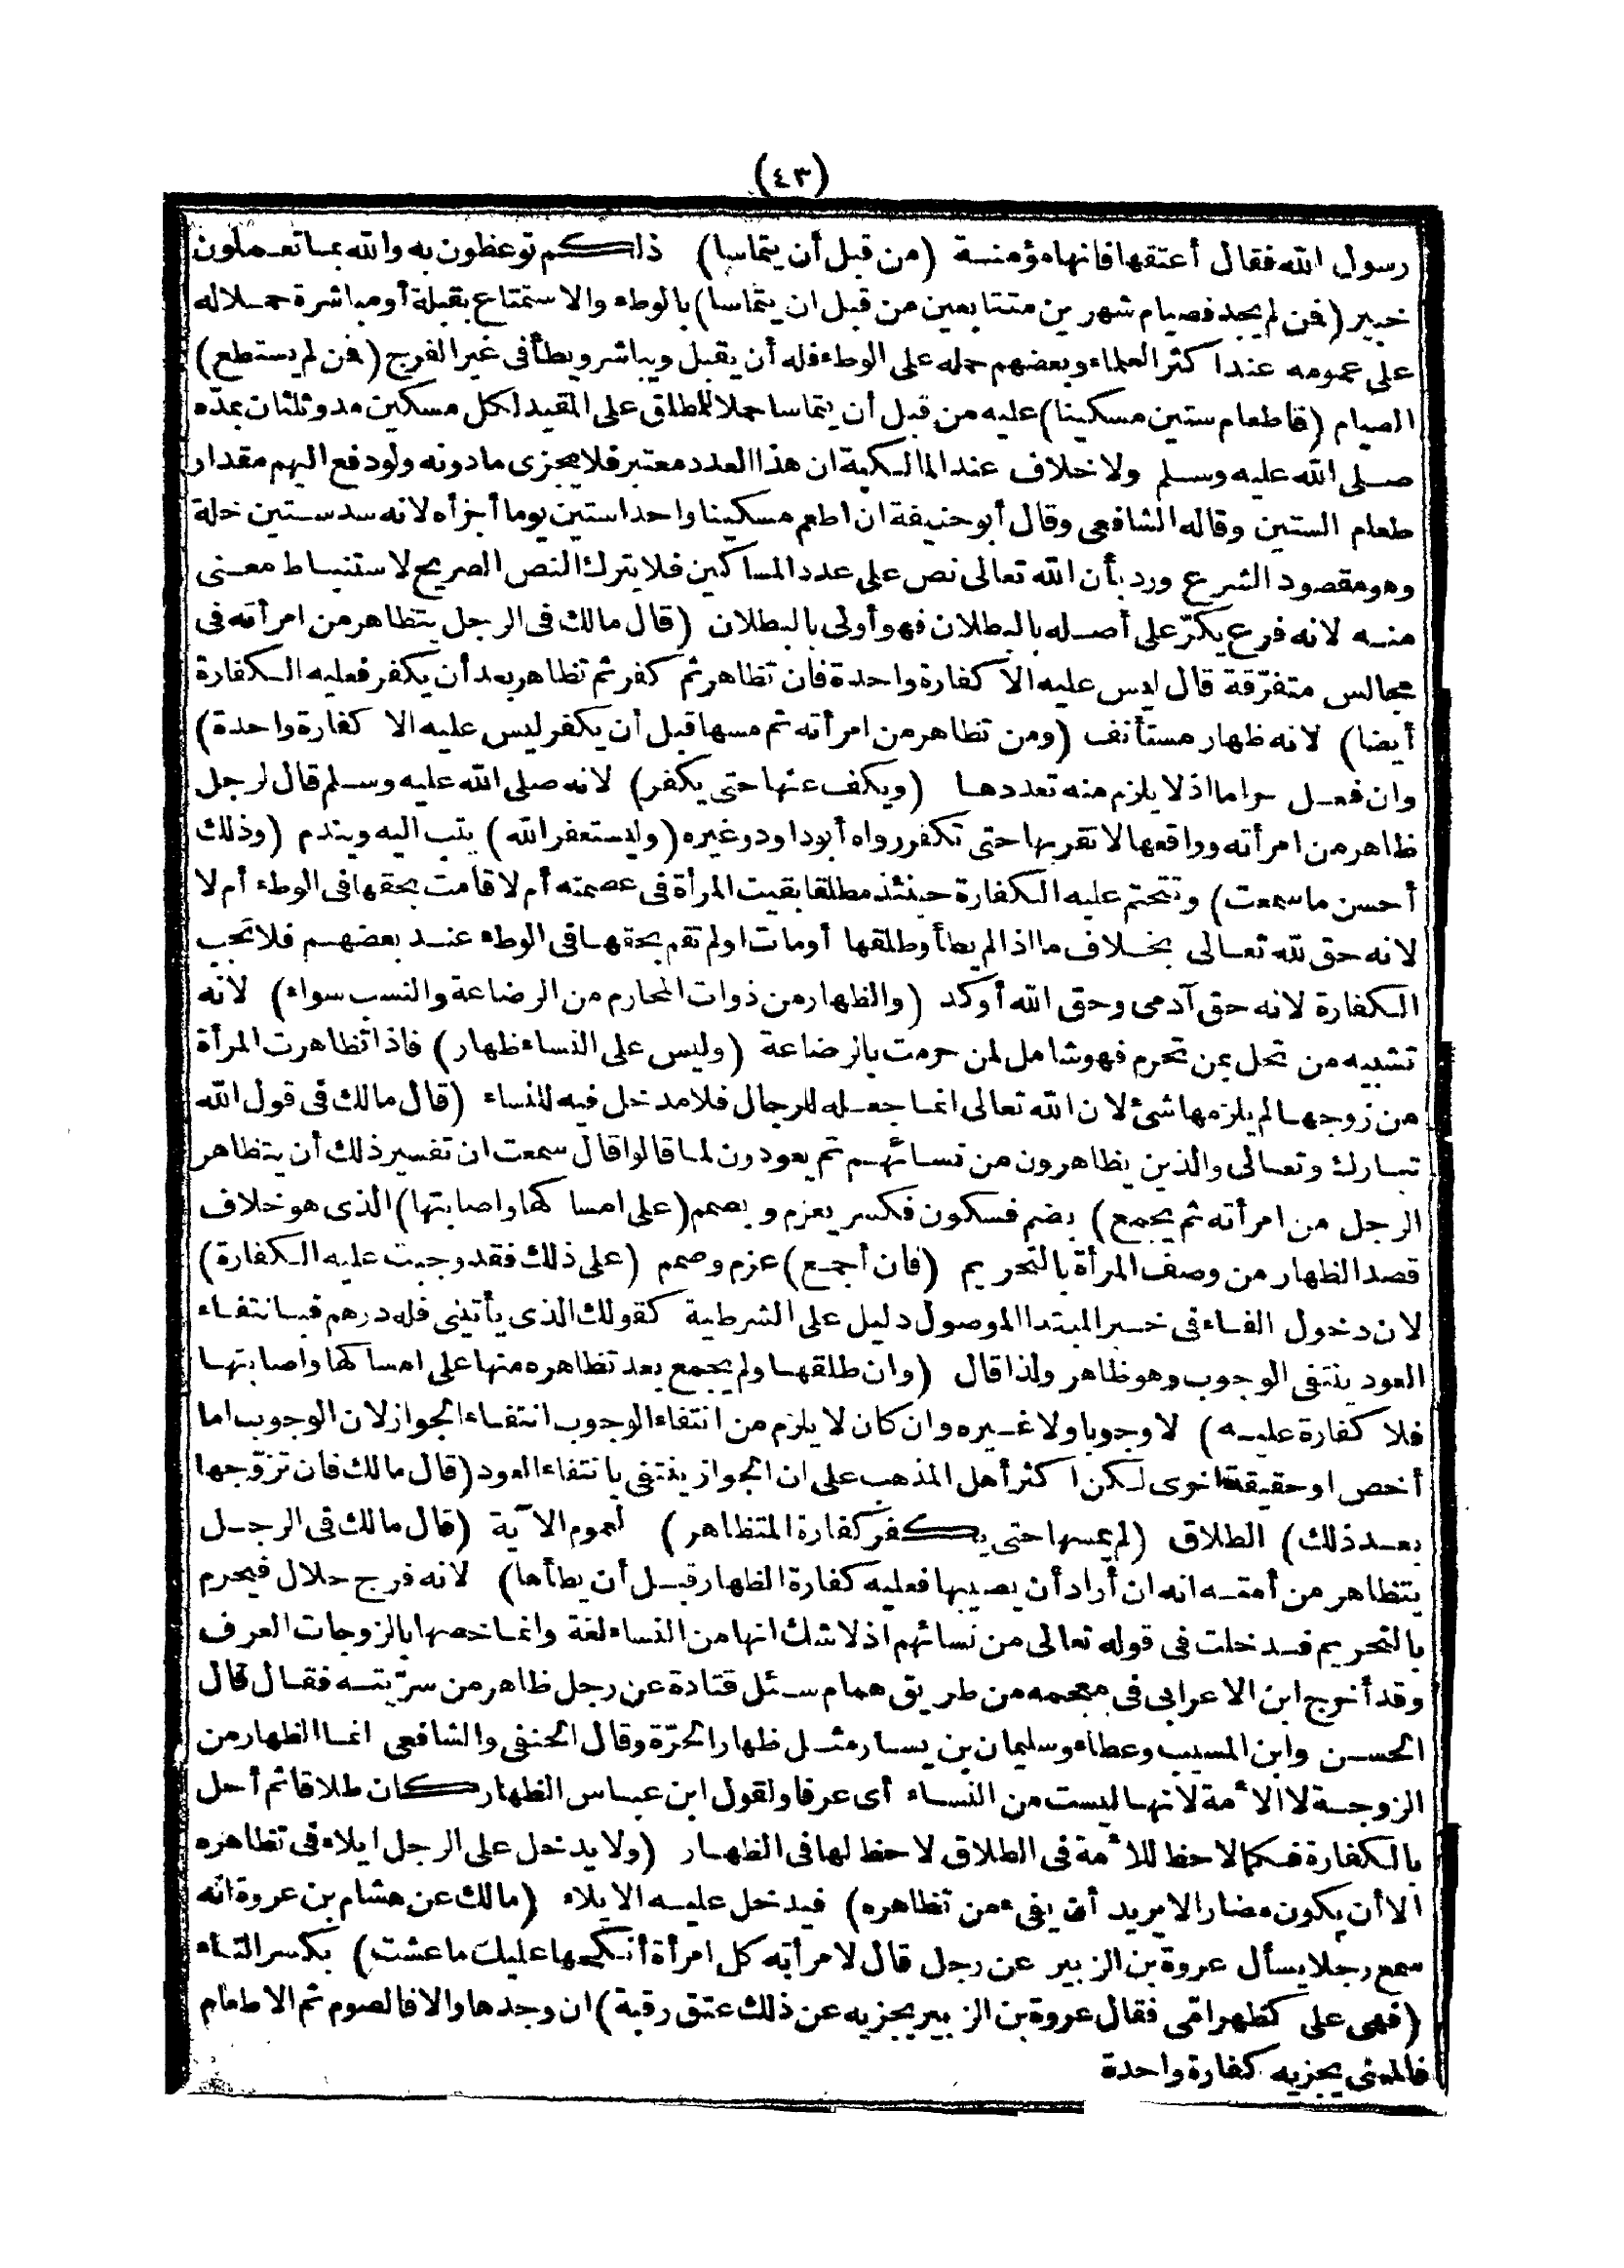 (٤٣)
رسول الله فقال أعتقها فانها مؤمنة (من قبل أن يتماسا) ذلكم توعظون به والله بما تعملون
خبير (فمن لم يجد فصيام شهرين متتابعين من قبل ان يتماسا) بالوطء والاستمتاع بقبلة أو مباشرة حملاله
على عمومه عند اكثر العلماء وبعضهم حمله على الوطء فله أن يقبل ويباشر ويطأ فى غير الفرج (فمن لم يستطع)
الصيام (فاطعام ستين مسكينا) عليه من قبل أن يتماسا حملا للمطلق على المقيد لكل مسكين مد وثلثان بمدّه
صلى الله عليه وسلم ولا خلاف عند المالكية ان هذا العدد معتبر فلا يجزى مادونه ولو دفع اليهم مقدار
طعام الستين وقاله الشافعى وقال أبو حنيفة ان اطعم مسكينا واحدا ستين يوما أجزأه لانه سد ستين خلة
وهو مقصود الشرع ورد بأن الله تعالى نص على عدد المساكين فلا يترك النص الصريح لاستنباط معنى
منه لانه فرع يكرّ على أصله بالبطلان فهو أولى بالبطلان (قال مالك فى الرجل يتظاهر من امرأته فى
مجالس متفرّقة قال ليس عليه الا كفارة واحدة فان تظاهر ثم كفر ثم تظاهر بعد أن يكفر فعليه الكفارة
أيضا) لانه ظهار مستأنف (ومن تظاهر من امرأته ثم مسها قبل أن يكفر ليس عليه الا كفارة واحدة)
وان فعل حراما اذ لا يلزم منه تعددها (ويكف عنها حتى يكفر) لانه صلى الله عليه وسلم قال لرجل
ظاهر من امرأته وواقعها لا تقربها حتى تكفر رواه أبو داود وغيره (وليستغفر الله) يتب اليه ويندم (وذلك
أحسن ما سمعت) وتتحتم عليه الكفارة حينئذ مطلقا بقيت المرأة فى عصمته أم لا قامت بحقها فى الوطء أم لا
لانه حق لله تعالى بخلاف ما اذا لم يطأ وطلقها أو مات او لم تقم بحقها فى الوطء عند بعضهم فلا تجب
الكفارة لانه حق آدمى وحق الله أوكد (والظهار من ذوات المحارم من الرضاعة والنسب سواء) لانه
تشبيه من تحل بمن تحرم فهو شامل لمن حرمت بالرضاعة (وليس على النساء ظهار) فاذا تظاهرت المرأة
من زوجها لم يلزمها شئ لان الله تعالى انما جعله للرجال فلا مدخل فيه للنساء (قال مالك فى قول الله
تبارك وتعالى والذين يظاهرون من نسائهم ثم يعودون لما قالوا قال سمعت ان تفسير ذلك أن يتظاهر
الرجل من امرأته ثم يجمع) بضم فسكون فكسر يعزم ويصمم (على امساكها واصابتها) الذى هو خلاف
قصد الظهار من وصف المرأة بالتحريم (فان أجمع) عزم وصمم (على ذلك فقد وجبت عليه الكفارة)
لان دخول الفاء فى خبر المبتدا الموصول دليل على الشرطية كقولك الذى يأتينى فله درهم فبانتفاء
العود ينتفى الوجوب وهو ظاهر ولذا قال (وان طلقها ولم يجمع بعد تظاهره منها على امساكها واصابتها
فلا كفارة عليه) لا وجوبا ولا غيره وان كان لا يلزم من انتفاء الوجوب انتفاء الجواز لان الوجوب اما
أخص او حقيقة اخرى لكن اكثر أهل المذهب على ان الجواز ينتفى بانتفاء العود (قال مالك فان تزوّجها
بعد ذلك) الطلاق (لم يمسها حتى يكفر كفارة المتظاهر) لعموم الآية (قال مالك فى الرجل
يتظاهر من أمته انه ان أراد أن يصيبها فعليه كفارة الظهار قبل أن يطأها) لانه فرج حلال فيحرم
بالتحريم فدخلت فى قوله تعالى من نسائهم اذ لا شك انها من النساء لغة وانما خصها بالزوجات العرف
وقد أخرج ابن الاعرابى فى معجمه من طريق همام سئل قتادة عن رجل ظاهر من سرّيته فقال قال
الحسن وابن المسيب وعطاء وسليمان بن يسار مثل ظهار الحرّة وقال الحنفى والشافعى انما الظهار من
الزوجة لا الأمة لانها ليست من النساء أى عرفا ولقول ابن عباس الظهار كان طلاقا ثم أحل
بالكفارة فكما لا حظ للأمة فى الطلاق لا حظ لها فى الظهار (ولا يدخل على الرجل ايلاء فى تظاهره
الا أن يكون مضارا لا يريد أن يفىء من تظاهره) فيدخل عليه الايلاء (مالك عن هشام بن عروة انه
سمع رجلا يسأل عروة بن الزبير عن رجل قال لامرأته كل امرأة أنكحها عليك ما عشت) بكسر التاء
(فهى على كظهر امّى فقال عروة بن الزبير يجزيه عن ذلك عتق رقبة) ان وجدها والا فالصوم ثم الاطعام
فالمعنى يجزيه كفارة واحدة